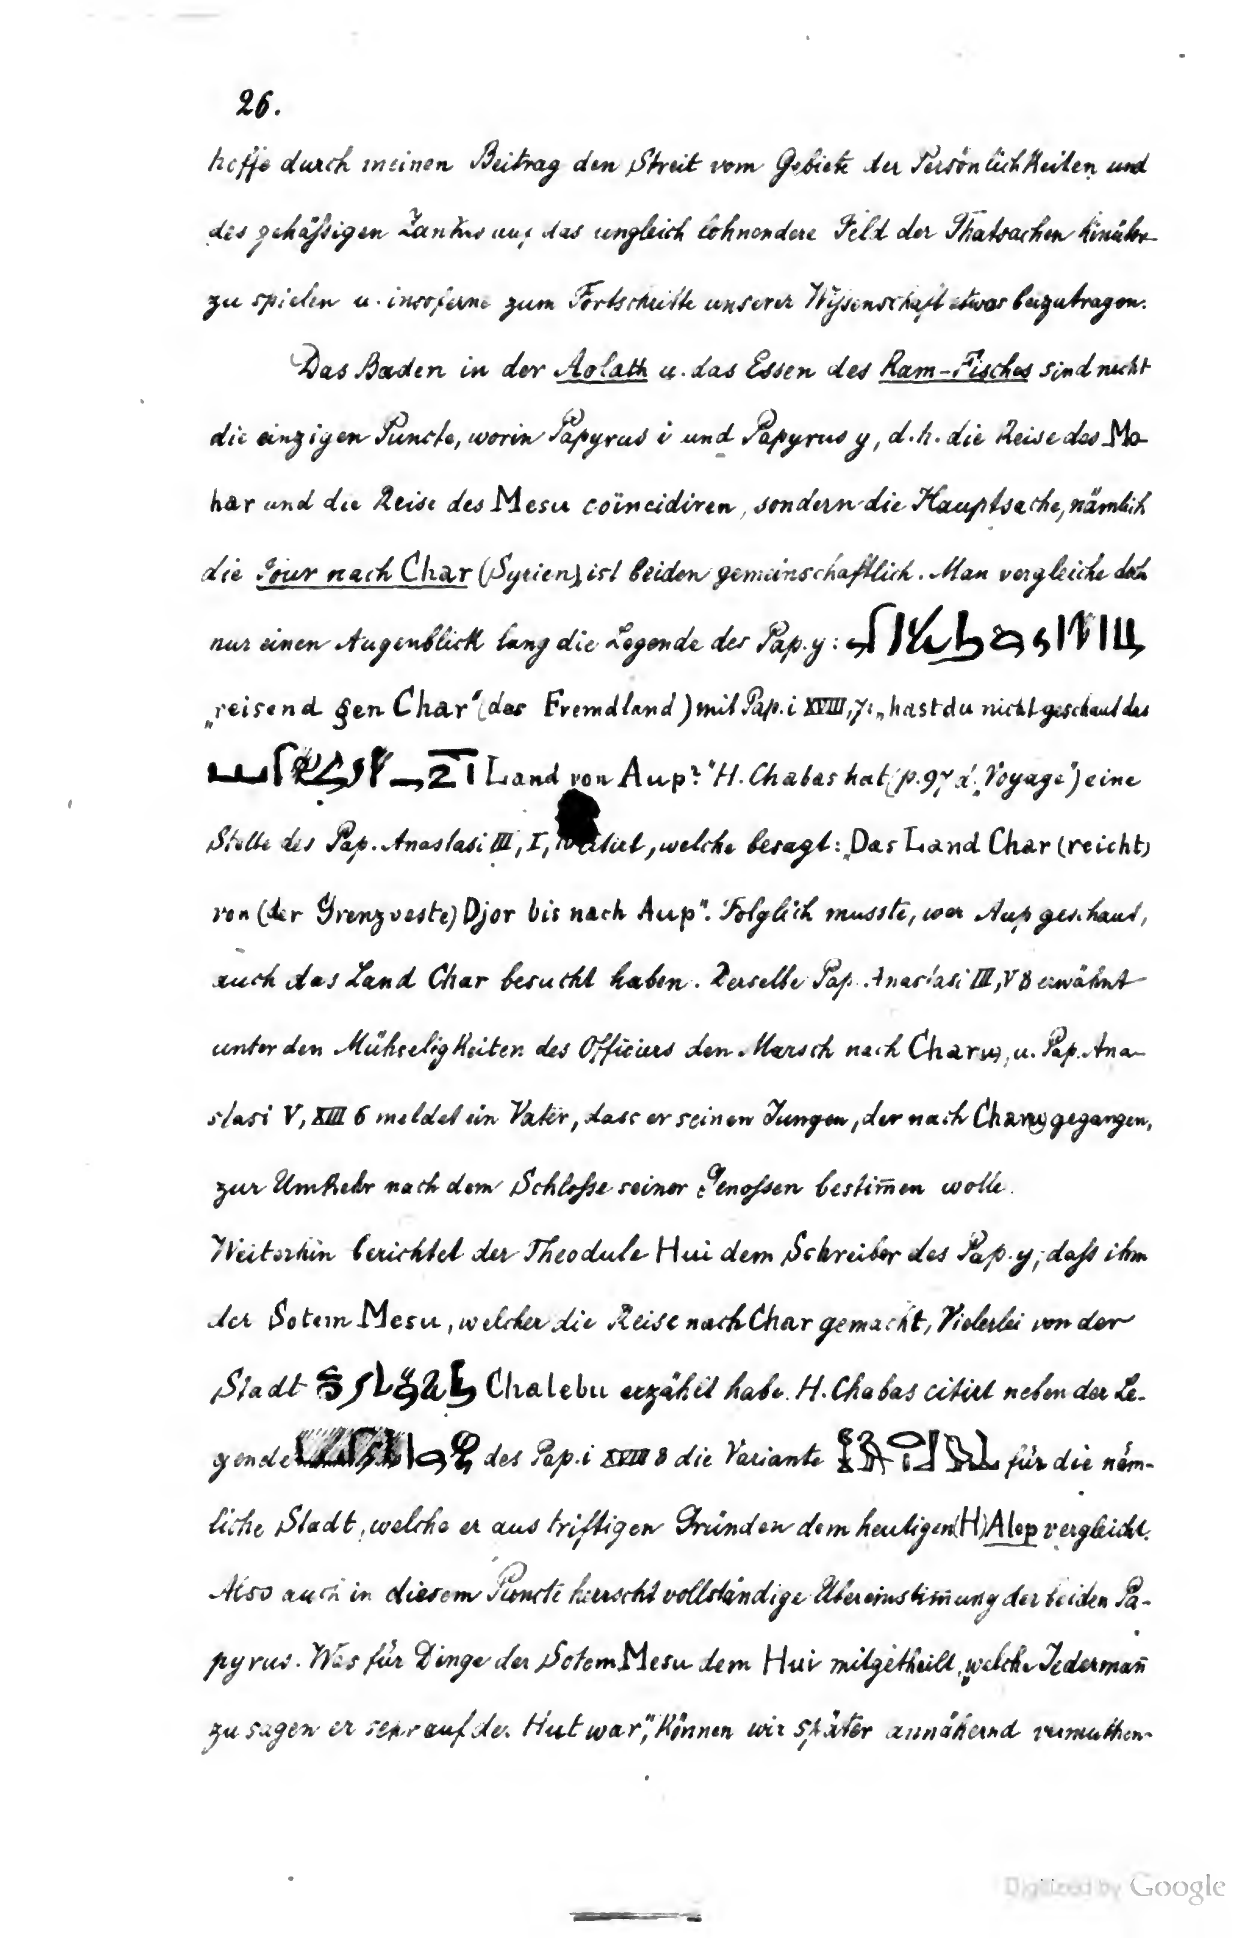 26.
hoffe durch meinen Beitrag den Streit vom Gebiete der Persönlichkeiten und
des gehäßigen Zankes auf das ungleich lohnendere Feld der Thatsachen hinüber
zu spielen u. insoferne zum Fortschritte unserer Wißsenschaft etwas beizutragen.
Das Baden in der Aolath u. das Essen des Ram-Fisches sind nicht
die einzigen Puncte, worin Papyrus i und Papyrus y, d.h. die Reise des Mo-
har und die Reise des Mesu coïncidiren, sondern die Hauptsache, nämlich
die Tour nach Char (Syrien) ist beiden gemeinschaftlich. Man vergleiche doch
nur einen Augenblick lang die Legende des Pap. y:
„reisend gen Char" (das Fremdland) mit Pap. i XVIII, 7: „hast du nicht geschaut das
Land von Aup?" H. Chabas hat (p. 97 d. „Voyage") eine
Stelle des Pap. Anastasi III, I, citirt, welche besagt: „Das Land Char (reicht)
von (der Grenzveste) Djor bis nach Aup". Folglich musste, wer Aup geschaut,
auch das Land Char besucht haben. Derselbe Pap. Anastasi III, V 8 erwähnt
unter den Mühseligkeiten des Officiers den Marsch nach Charu, u. Pap. Ana-
stasi V, XIII 6 meldet ein Vater, dass er seinen Jungen, der nach Charu gegangen,
zur Umkehr nach dem Schloße seiner Genoßen bestim̄en wolle.
Weiterhin berichtet der Theodule Hui dem Schreiber des Pap. y, daß ihm
der Sotem Mesu, welcher die Reise nach Char gemacht, Vielerlei von der
Stadt Chalebu erzählt habe. H. Chabas citirt neben der Le-
gende des Pap. i XVIII 8 die Variante für die näm-
liche Stadt, welche er aus triftigen Gründen dem heutigen (H)Alep vergleicht.
Also auch in diesem Puncte herrscht vollständige Übereinstim̄ung der beiden Pa-
pyrus. Was für Dinge der Sotem Mesu dem Hui mitgetheilt, „welche Jederman̄
zu sagen er sehr auf der Hut war", können wir später annähernd vermuthen.
Digitized by Google